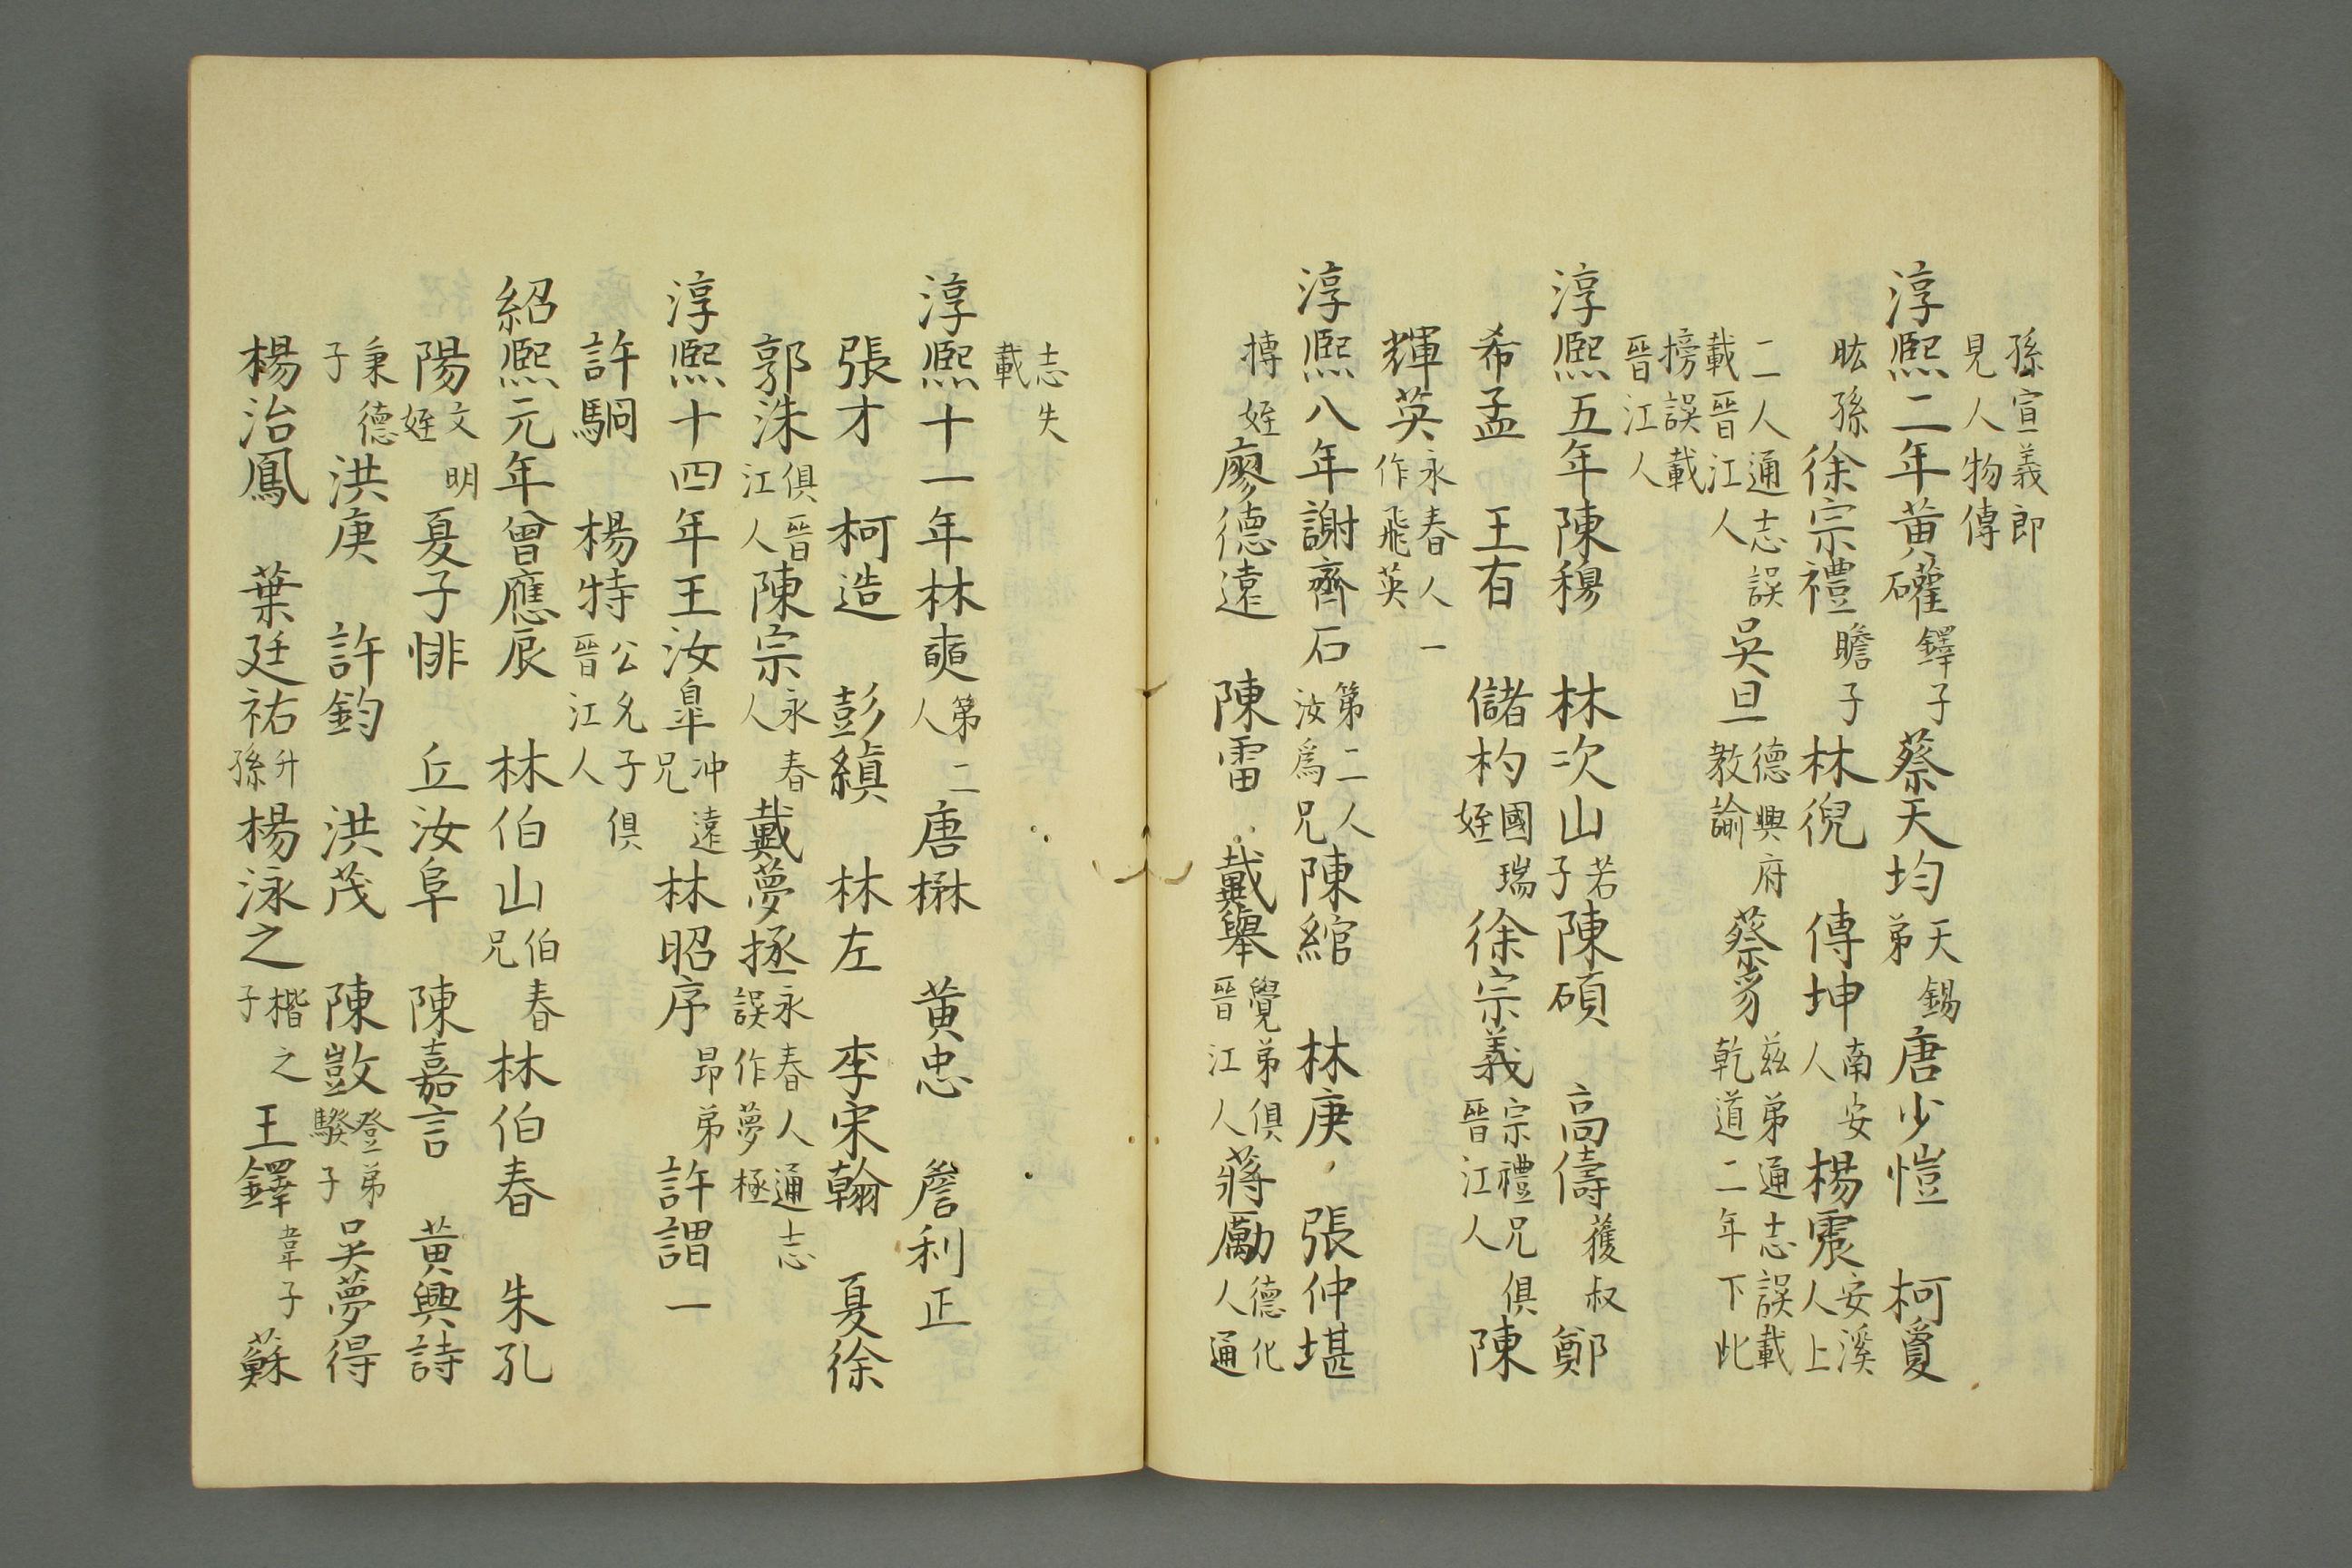 孫宣義郎見人物傳
淳熙二年黃㰌鐸子蔡天均天錫弟唐少愷 柯夐
肱孫徐宗禮瞻子林倪 傅坤南安人楊震安溪人上
二人通志誤載晉江人吳旦德興府教諭蔡豸茲弟通志誤載乾道二年下此
榜誤載晉江人
淳熙五年陳穆 林次山若子陳碩 高儔薖叔鄭
希孟 王有 儲杓國瑞姪徐宗義宗禮兄俱晉江人陳
輝英永春人一作飛英
淳熙八年謝齊石第二人汝爲兄陳綰 林庚 張仲堪
摶姪廖德遠 陳雷 戴舉覺弟俱晉江人蔣勵德化人通
志失載
淳熙十一年林奭第二人唐楙 黃忠 詹利正
張才 柯造 彭縝 林左 李宋翰 夏徐
郭洙俱晉江人陳宗永春人戴夢拯永春人通志誤作夢極
淳熙十四年王汝皐冲遠兄林昭序昂弟許謂一
許駉 楊特公兊子子俱晉江人
紹熙元年曾應辰 林伯山伯春兄林伯春 朱孔
陽文明姪夏子悱 丘汝阜 陳嘉言 黃興詩
秉德子洪庚 許鈞 洪茂 陳敳登弟騤子吳夢得
楊治鳳 葉廷祐升孫楊泳之楷之子王鐸韋子蘇